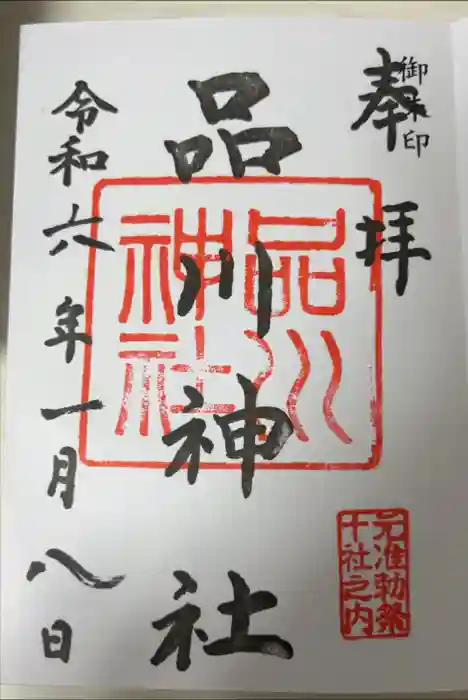 御朱印
奉拝
品川神社
品川
神社
元准勅祭
十社之内
令和六年一月八日